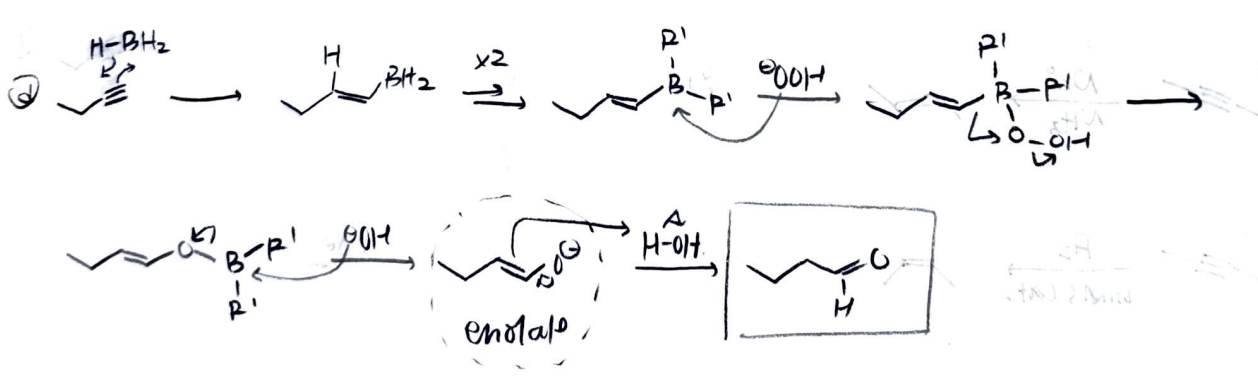 ⓓ H-BH₂
H BH₂
x2
R' B R'
⊖OOH
R' B R' O-OH
O B R' R'
⊖OH
O⊖
enolate
H-OH
O H